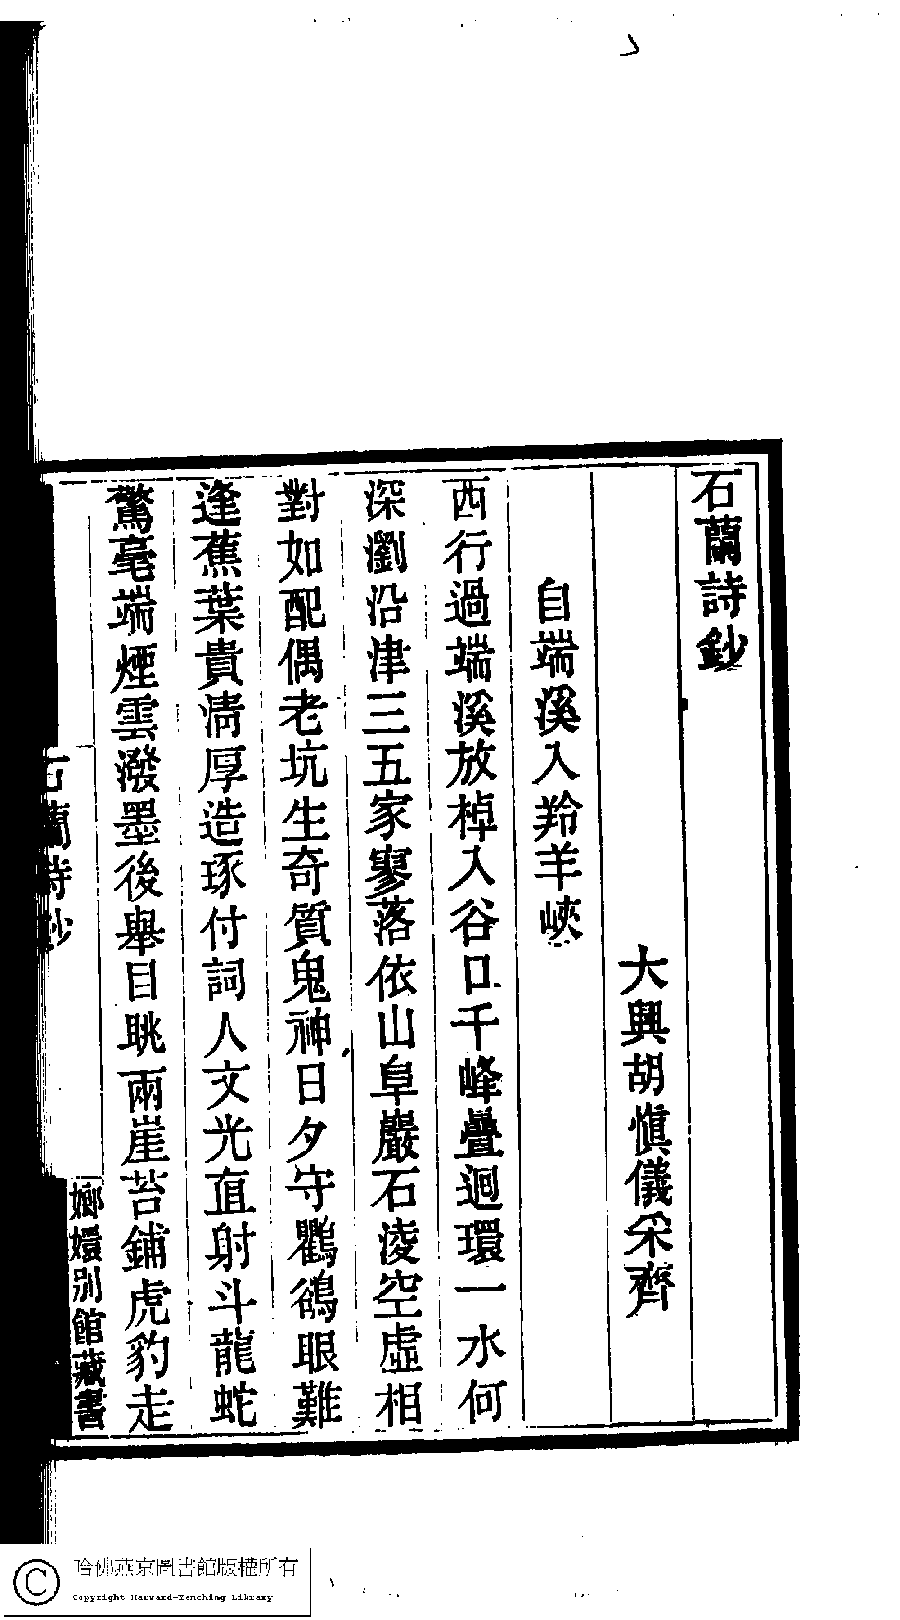 石蘭詩鈔
大興胡愼儀采齊
自端溪入羚羊峽
西行過端溪放棹入谷口千峰疊迴環一水何
深瀏沿津三五家寥落依山阜巖石淩空虛相
對如配偶老坑生奇質鬼神日夕守鸜鵒眼難
逢蕉葉貴淸厚造琢付詞人文光直射斗龍蛇
驚毫端煙雲潑墨後舉目眺兩崖苔鋪虎豹走
石蘭詩鈔
嫏嬛別館藏書
哈佛燕京圖書館版權所有
Copyright Harvard-Yenching Library